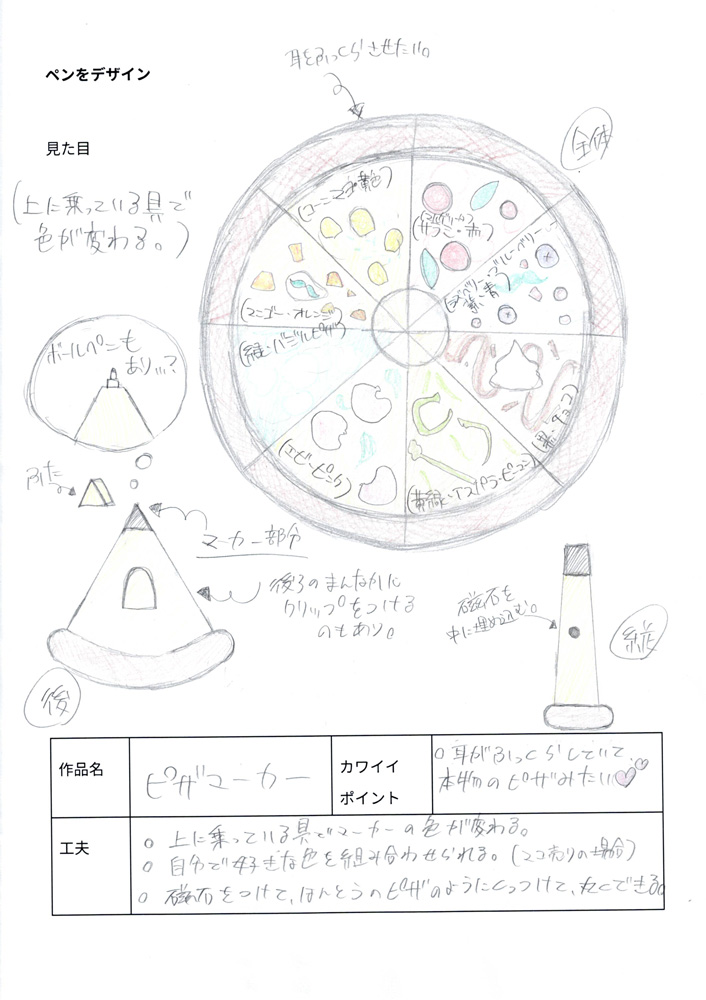 ペンをデザイン
耳をふっくらさせたい。
見た目
全体
(上に乗っている具で
色が変わる。)
(コーン・マヨ・黄色)
(マルゲリータ)
(サラミ・赤)
ブルーベリー
紫・青)
(マンゴー・オレンジ)
(緑・バジルピザ)
(黒・チョコ)
(エビ・ピンク)
(黄緑・アスパラ・ピーマン)
ボールペンも
あり…?
ふた
マーカー部分
後ろのまんなかに
クリップをつける
のもあり。
磁石を
中に埋め込む。
縦
後
作品名
ピザマーカー
カワイイ
ポイント
○耳がふっくらしていて、
本物のピザみたい♡♡
工夫
○ 上に乗っている具でマーカーの色が変わる。
○ 自分で好きな色を組み合わせられる。(マコ売りの場合)
○ 磁石をつけて、ほんとうのピザのようにくっつけて、丸くできる。